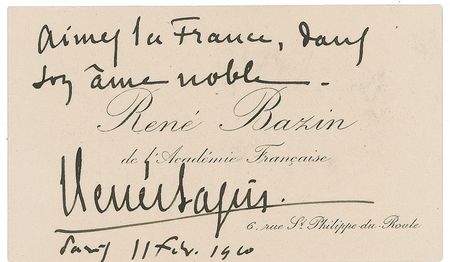 Aimez la France, dans
son âme noble.
René Bazin
de l'Académie Française
René Bazin.
6, rue St. Philippe-du-Roule
Paris 11 Fév. 1910